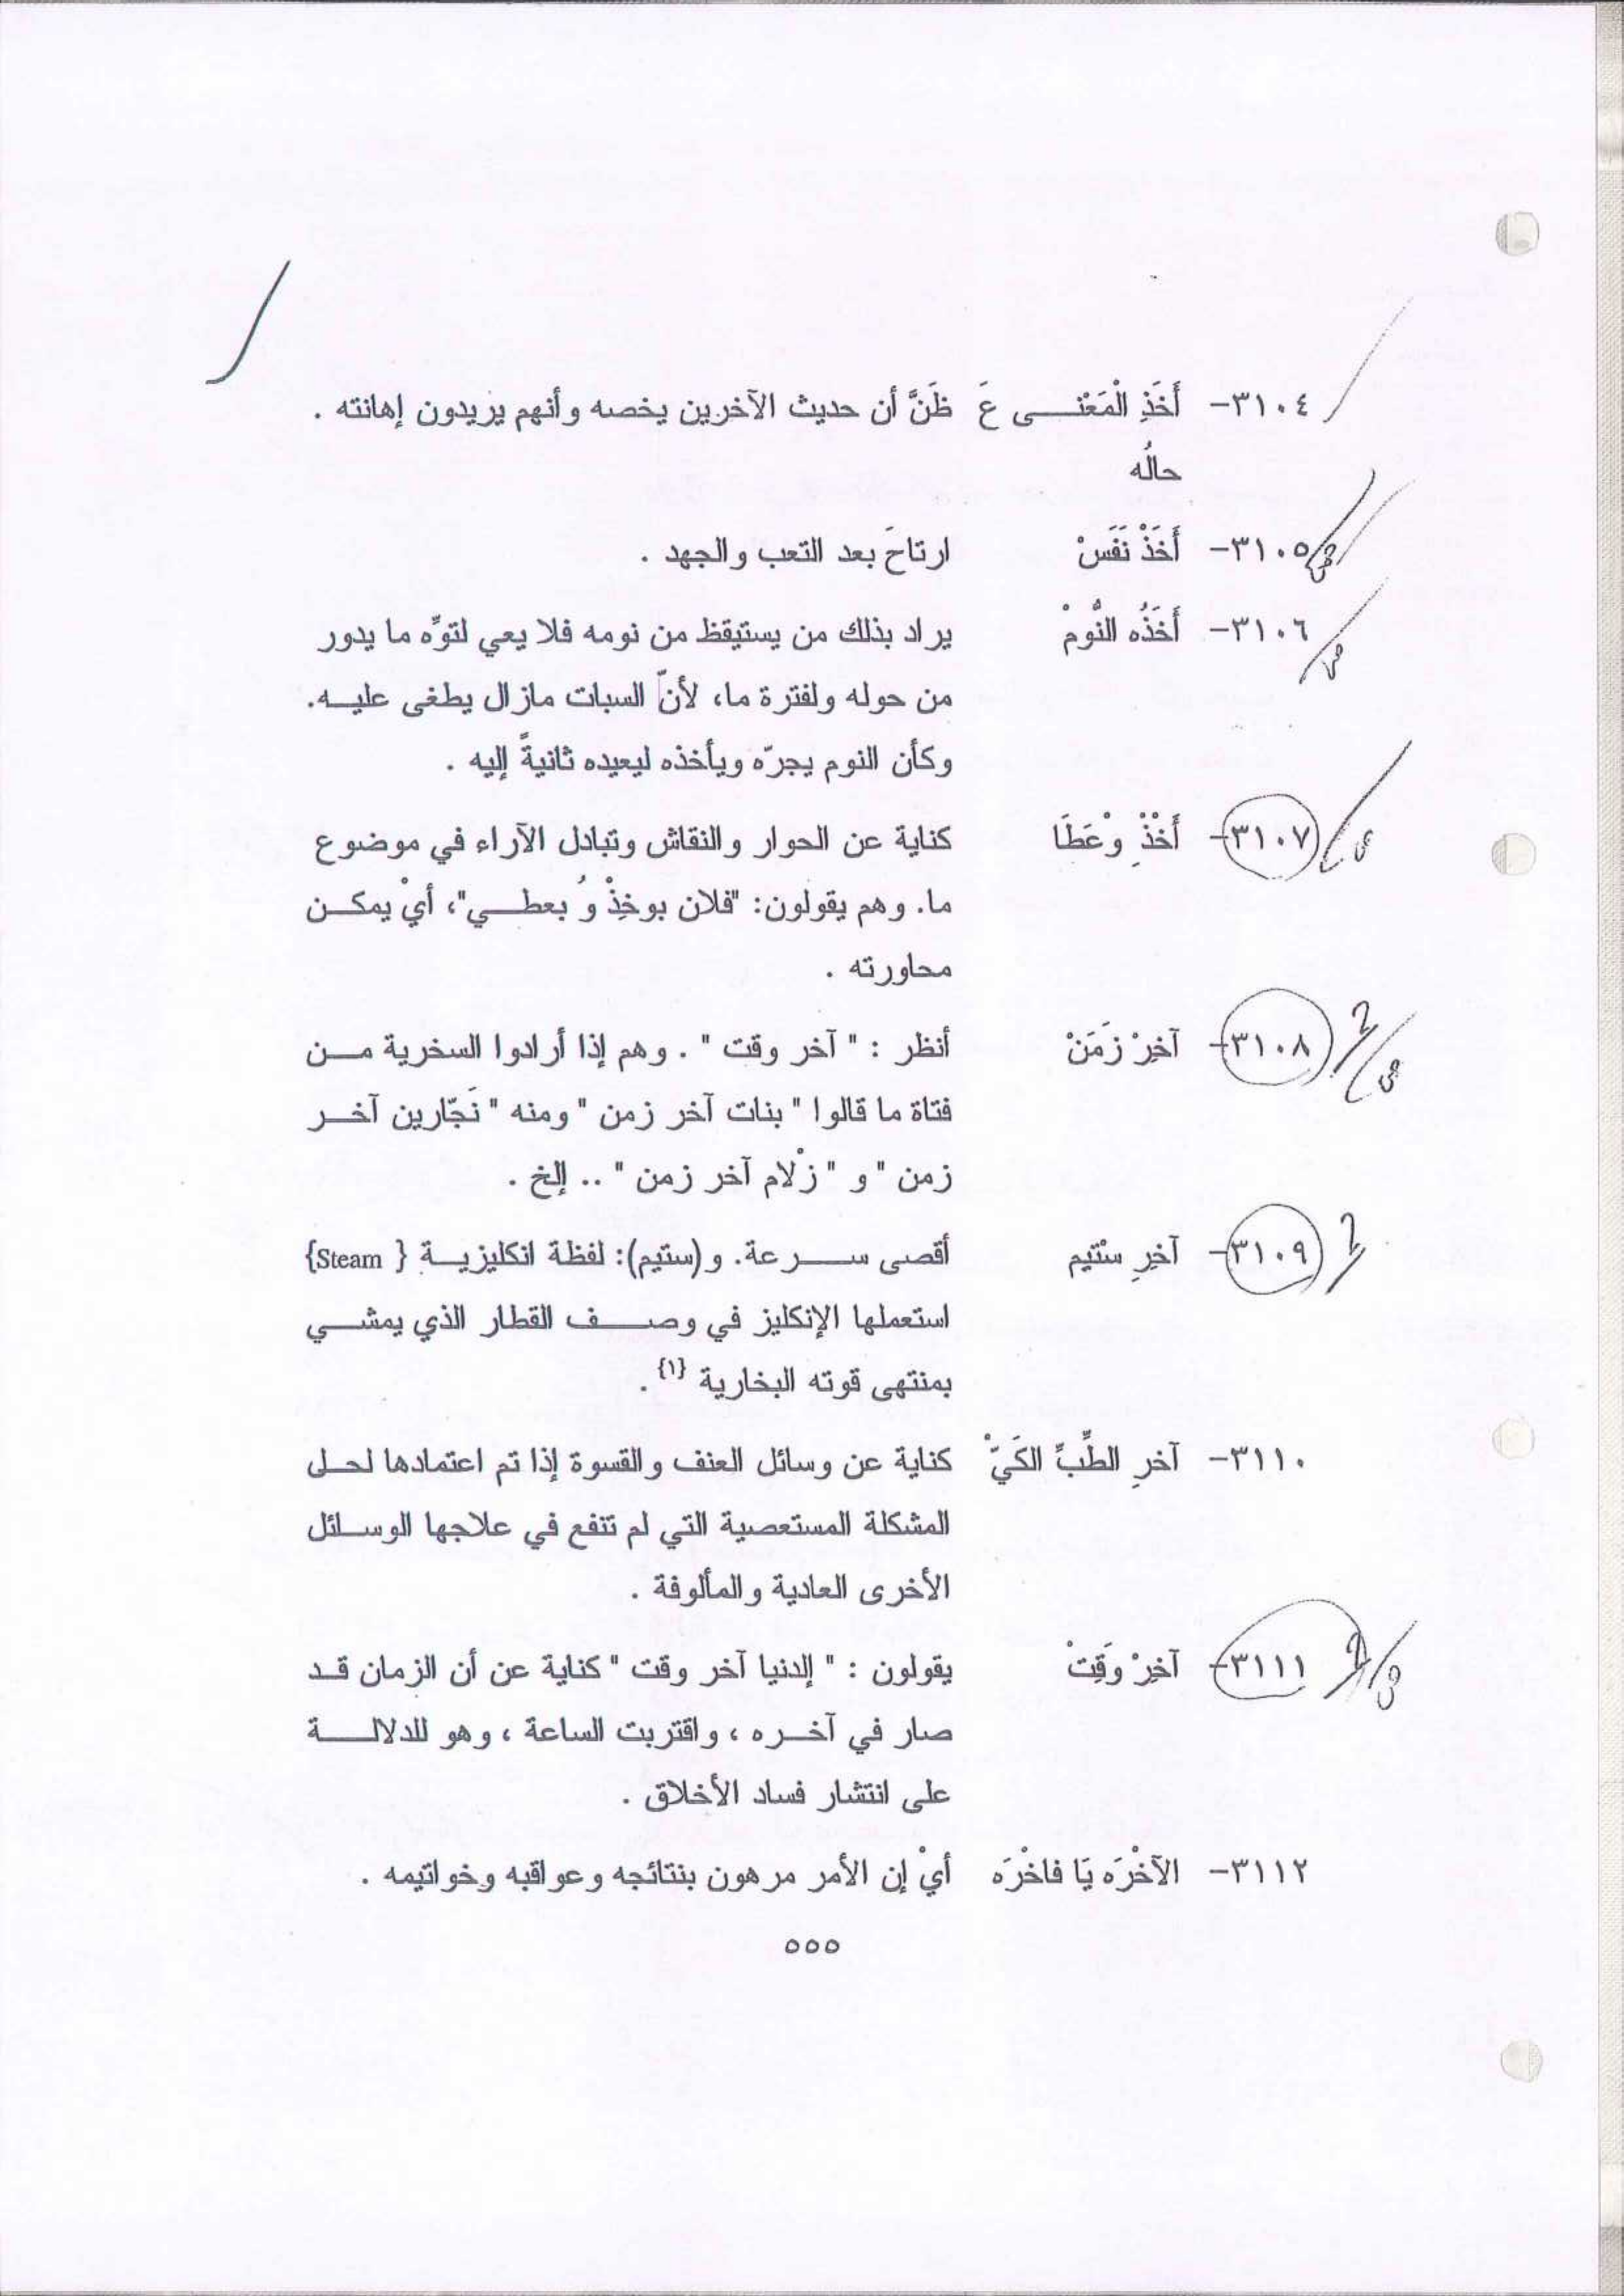 ٣١٠٤- أَخَذِ الْمَعْنــى عَ ظَنَّ أن حديث الآخرين يخصه وأنهم يريدون إهانته .
حالُه
٣١٠٥- أَخَذْ نَفَسْ ارتاحَ بعد التعب والجهد .
٣١٠٦- أَخَذُه النُّومْ يراد بذلك من يستيقظ من نومه فلا يعي لتوّه ما يدور
من حوله ولفترة ما، لأنّ السبات مازال يطغى عليــه.
وكأن النوم يجرّه ويأخذه ليعيده ثانيةً إليه .
٣١٠٧- أَخْذِْ وْعَطَا كناية عن الحوار والنقاش وتبادل الآراء في موضوع
ما. وهم يقولون: "فلان بوخِذْ وُ بعطــي"، أيْ يمكــن
محاورته .
٣١٠٨- آخِرْ زَمَنْ أنظر : " آخر وقت " . وهم إذا أرادوا السخرية مــن
فتاة ما قالوا " بنات آخر زمن " ومنه " نَجّارين آخــر
زمن " و " زْلام آخر زمن " .. إلخ .
٣١٠٩- آخِرِ سْتيم أقصى ســرعة. و(ستيم): لفظة انكليزيــة { Steam}
استعملها الإنكليز في وصــف القطار الذي يمشــي
بمنتهى قوته البخارية {١} .
٣١١٠- آخرِ الطِّبِّ الكَيّْ كناية عن وسائل العنف والقسوة إذا تم اعتمادها لحــل
المشكلة المستعصية التي لم تنفع في علاجها الوســائل
الأخرى العادية والمألوفة .
٣١١١- آخِرْ وَقِتْ يقولون : " إلدنيا آخر وقت " كناية عن أن الزمان قــد
صار في آخــره ، واقتربت الساعة ، وهو للدلالــة
على انتشار فساد الأخلاق .
٣١١٢- الآخْرَه يَا فاخْرَه أيْ إن الأمر مرهون بنتائجه وعواقبه وخواتيمه .
٥٥٥